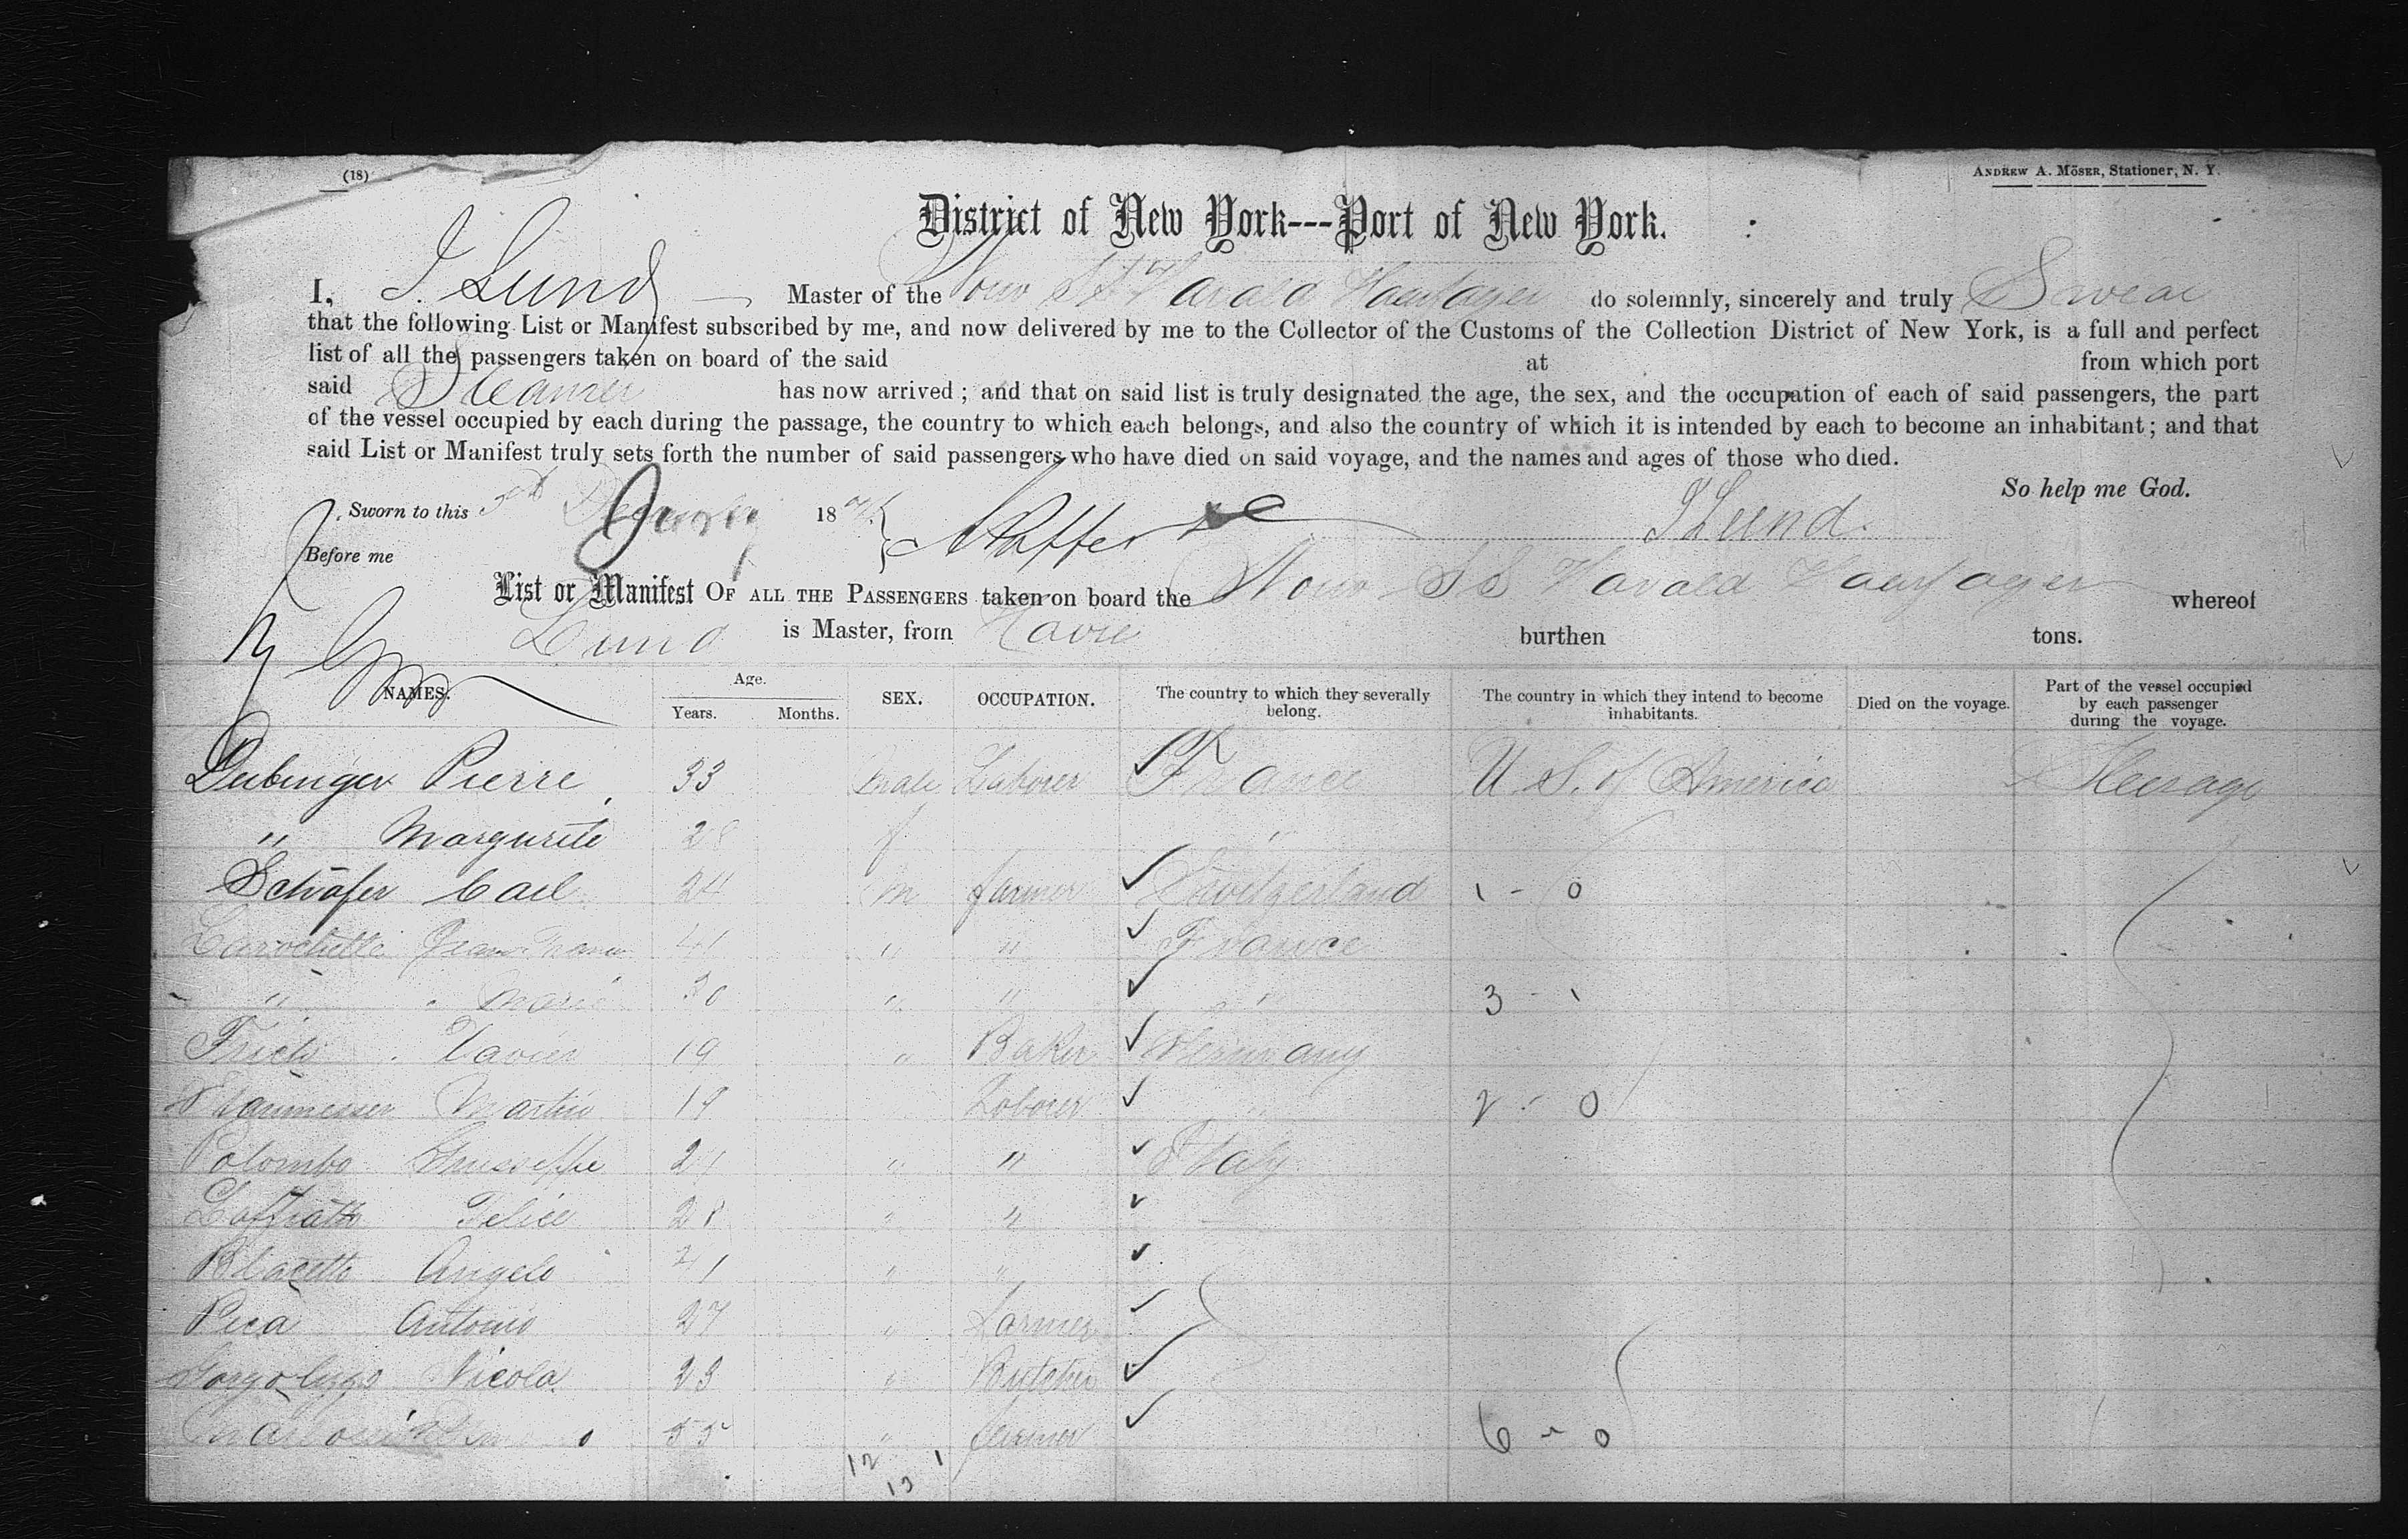 (18)
ANDREW A. MÖSER, Stationer, N. Y.
District of New York---Port of New York.
I, J. Lund Master of the Norw SS Harald Haarfager do solemnly, sincerely and truly Swear
that the following List or Manifest subscribed by me, and now delivered by me to the Collector of the Customs of the Collection District of New York, is a full and perfect
list of all the passengers taken on board of the said at from which port
said Steamer has now arrived ; and that on said list is truly designated the age, the sex, and the occupation of each of said passengers, the part
of the vessel occupied by each during the passage, the country to which each belongs, and also the country of which it is intended by each to become an inhabitant ; and that
said List or Manifest truly sets forth the number of said passengers who have died on said voyage, and the names and ages of those who died.
So help me God.
Sworn to this 18
J Lund.
Before me
List or Manifest OF ALL THE PASSENGERS taken on board the Norw SS Harald Haarfager whereof
Lund is Master, from Havre burthen tons.
NAMES. Age. Years. Months. SEX. OCCUPATION. The country to which they severally belong. The country in which they intend to become inhabitants. Died on the voyage. Part of the vessel occupied by each passenger during the voyage.
Deubinger Pierre 33 Male Laborer France U. S. of America Steerage
" Margurite 28 f "
Schäfer Carl 24 m farmer Switzerland 1 - 0
Larochette Jean 41 " " France
" " Marie 30 " " " 3 - 1
Xavier 19 " Baker Germany
Martin 19 Laborer " 2 - 0
Polombo Giusseppe 21 " " Italy
Felice 28 " "
Blacette Angelo 21 " "
Peca Antonio 27 " Farmer
Nicola 23 " Butcher
55 " farmer 6 - 0
12 1
13